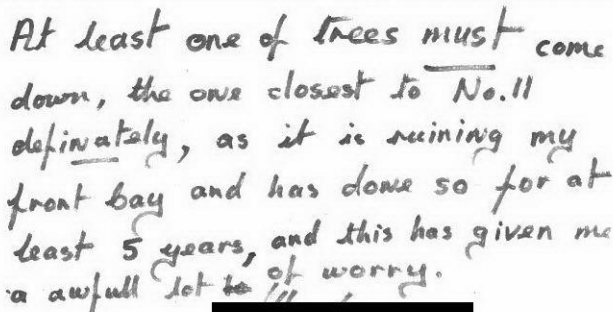 At least one of trees must come
down, the one closest to No.11
definately, as it is ruining my
front bay and has done so for at
least 5 years, and this has given me
a awfull lot of worry.